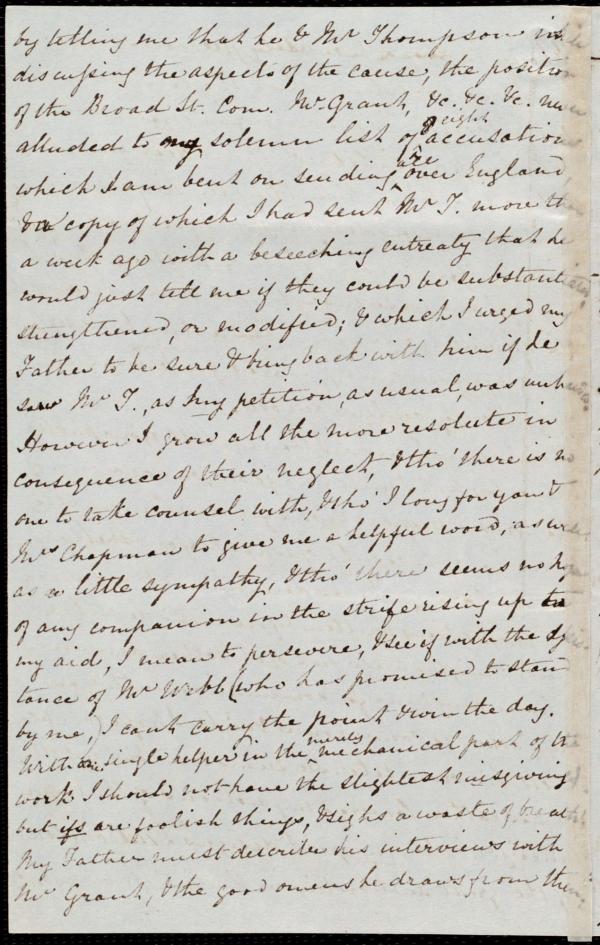 by telling me that he & Mr Thompson in
discussing the aspects of the cause, the position
of the Broad St. Com. Mr Grant, &c. &c. &c. never
alluded to my solemn list of eight accusations
which I am bent on sending are over England,
& a copy of which I had sent Mr T. more than
a week ago with a beseeching entreaty that he
would just tell me if they could be substantiated,
strengthened, or modified; & which I urged my
Father to be sure & bring back with him if he
saw Mr T., as my petition, as usual, was
However I grow all the more resolute in
consequence of their neglect, & tho' there is no
one to take counsel with, & tho' I long for you &
Mrs Chapman to give me a helpful word, as well
as a little sympathy, & tho' there seems no hope
of any companion in the strife rising up to
my aid, I mean to persevere, & see if with the
tance of Mr Webb (who has promised to stand
by me,) I can't carry the point & win the day.
With one single helper in the merely mechanical part of the
work I should not have the slightest misgiving
but ifs are foolish things, & sighs a waste of breath.
My Father must describe his interviews with
Mr Grant, & the good omens he draws from them